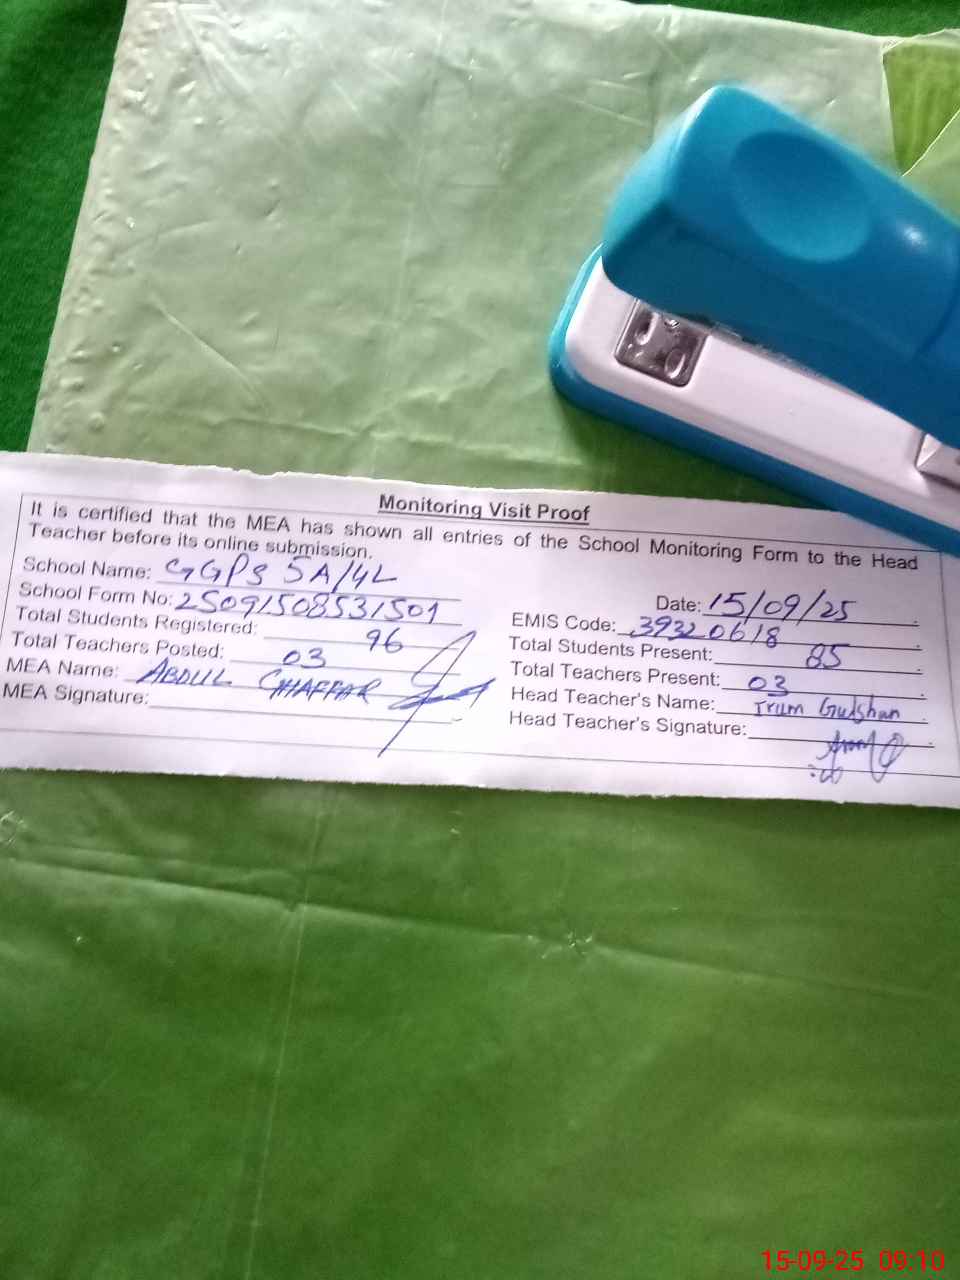 Monitoring Visit Proof
It is certified that the MEA has shown all entries of the School Monitoring Form to the Head
Teacher before its online submission.
School Name: GGPS 5A/4L
Date: 15/09/25
School Form No: 25091508531501
EMIS Code: 39320618
Total Students Registered: 96
Total Students Present: 85
Total Teachers Posted: 03
Total Teachers Present: 03
MEA Name: ABDUL GHAFFAR
Head Teacher's Name: Irum Gulshan
MEA Signature:
Head Teacher's Signature:
15-09-25 09:10